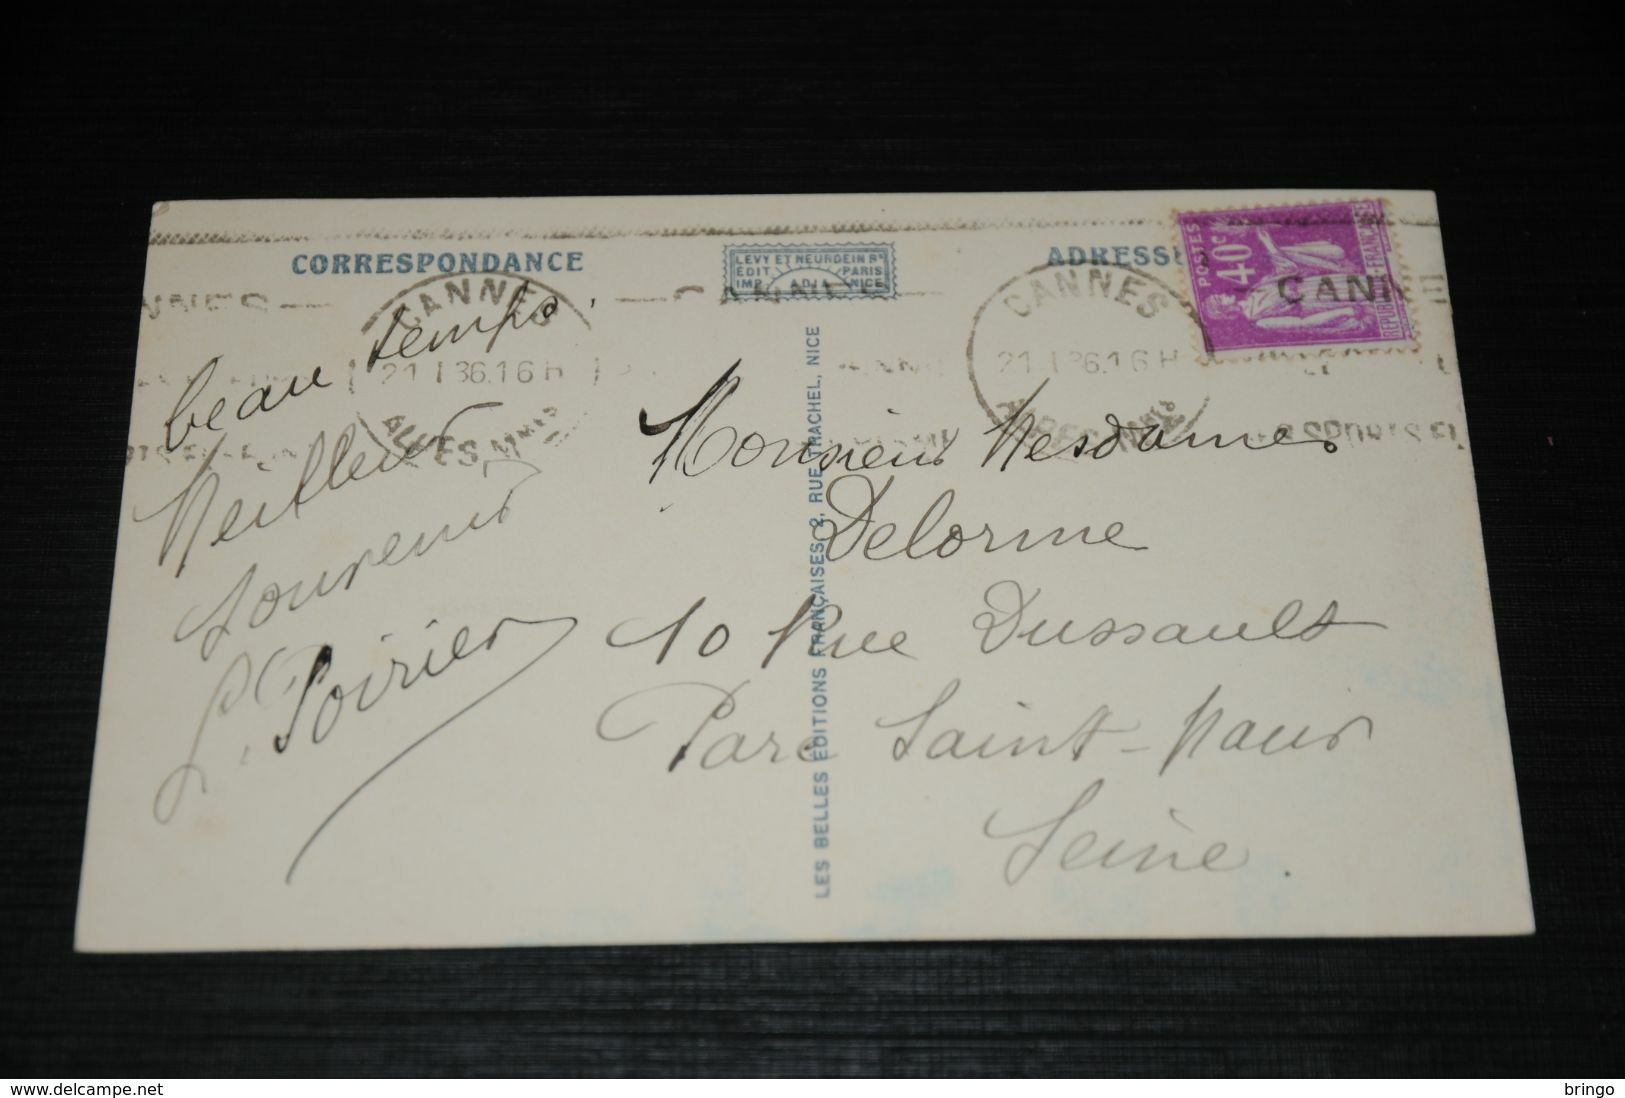 CORRESPONDANCE
LEVY ET NEURDEIN Rs
EDIT PARIS
IMP. ADIA NICE
ADRESSE
POSTES
40c
REPUBLIQUE-FRANÇAISE
CANNES
21 I 36.16H
ALPES MMES
CANNES
21 I 36.16H
CANN
SPORTS
beau temps.
Meilleur
souvenir
Poirier
Monsieur Mesdames
Delorme
10 Rue Dussault
Parc Saint-Maur
Seine.
LES BELLES EDITIONS FRANÇAISES, 2, RUE TRACHEL, NICE
delcampe.net
bringo